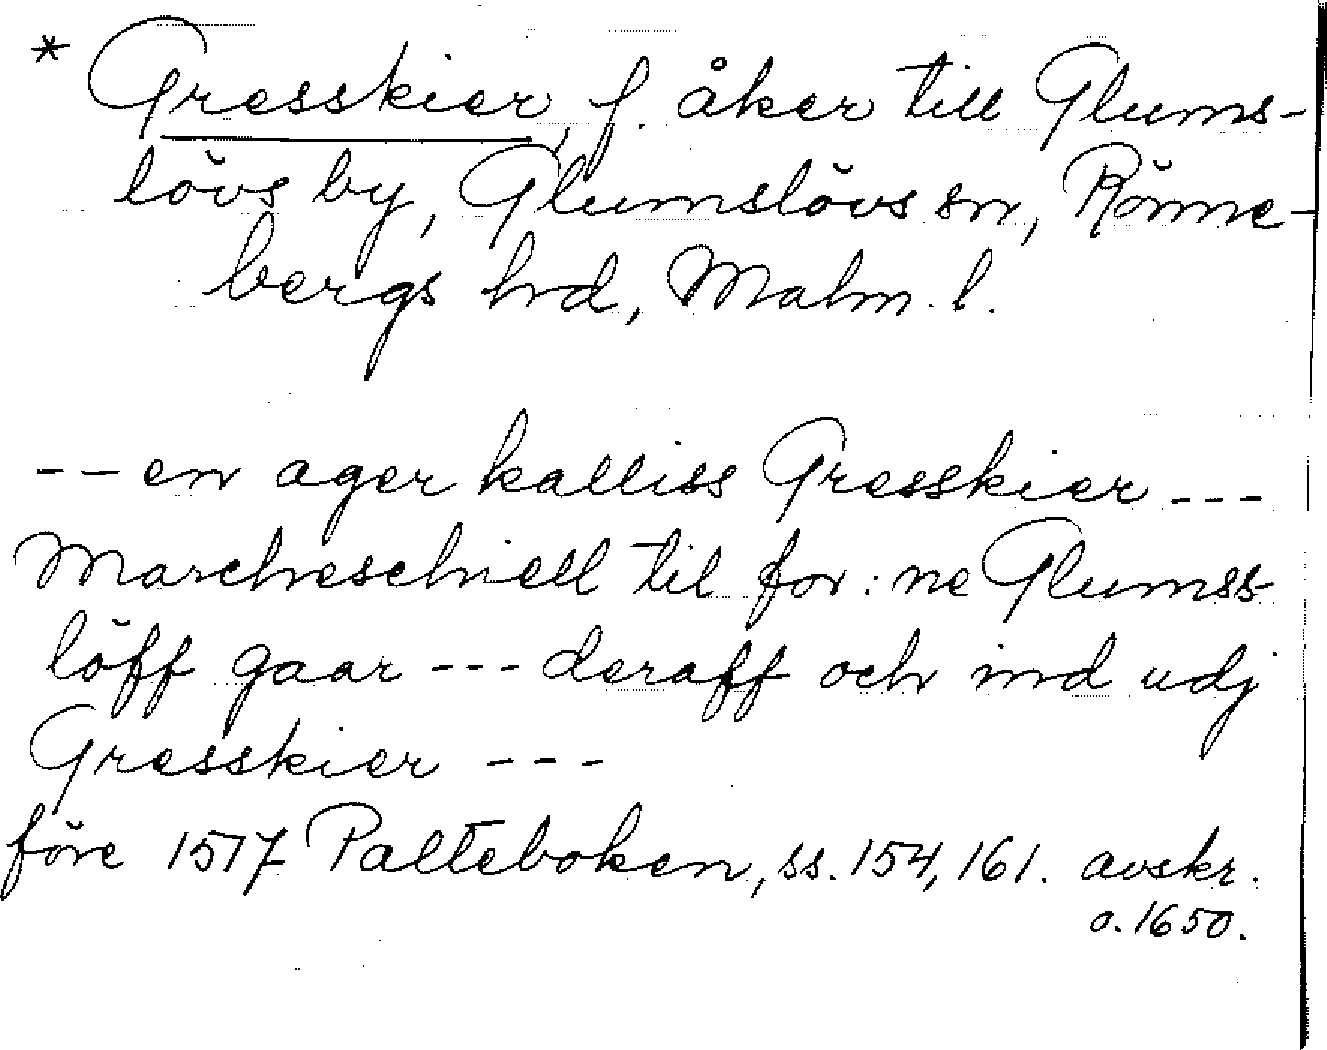 * Gresskier, f. åker till Glums-
lövs by, Glumslövs sn, Rönne-
bergs hd, Malm. l.
-- en ager kalliss Gresskier ---
Marcheschiell til for:ne Glumss-
löff gaar --- deraff och ind udj
Gresskier ---
före 1517 Palteboken, ss. 154, 161. avskr.
o. 1650.